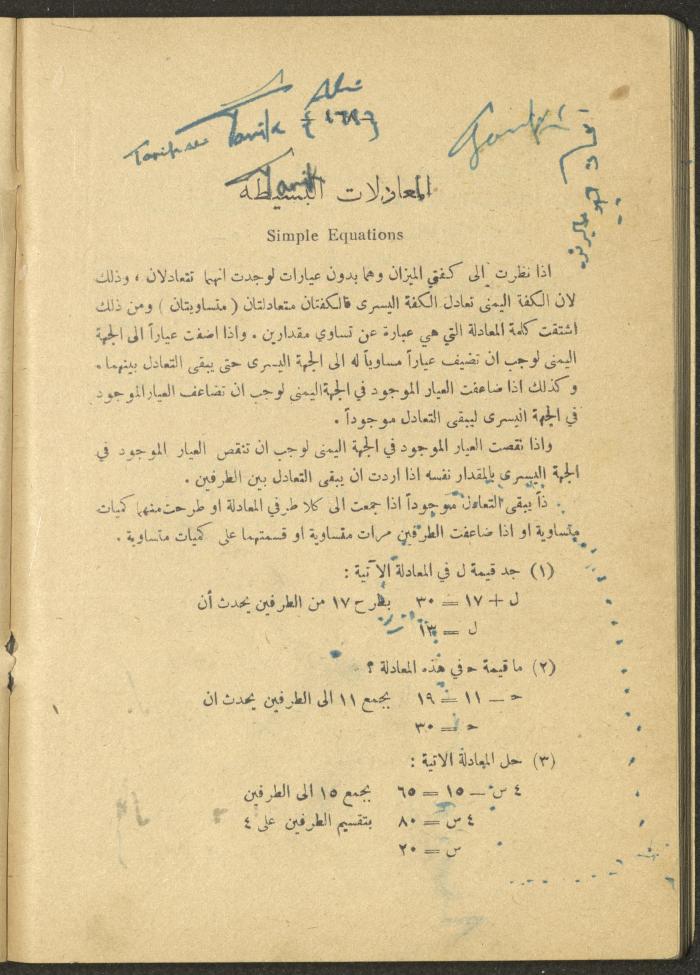 Ali
Tarik
Tarik
المعادلات البسيطة
Simple Equations
اذا نظرت الى كفتي الميزان وهما بدون عيارات لوجدت انهما تتعادلان ، وذلك
لان الكفة اليمنى تعادل الكفة اليسرى فالكفتان متعادلتان ( متساويتان ) ومن ذلك
اشتقت كلمة المعادلة التي هي عبارة عن تساوي مقدارين . واذا اضفت عياراً الى الجهة
اليمنى لوجب ان تضيف عياراً مساوياً له الى الجهة اليسرى حتى يبقى التعادل بينهما .
وكذلك اذا ضاعفت العيار الموجود في الجهة اليمنى لوجب ان تضاعف العيار الموجود
في الجهة اليسرى ليبقى التعادل موجوداً .
واذا نقصت العيار الموجود في الجهة اليمنى لوجب ان تنقص العيار الموجود في
الجهة اليسرى بالمقدار نفسه اذا اردت ان يبقى التعادل بين الطرفين .
ذاً يبقى التعادل موجوداً اذا جمعت الى كلا طرفي المعادلة او طرحت منهما كميات
متساوية او اذا ضاعفت الطرفين مرات متساوية او قسمتهما على كميات متساوية .
(١) جد قيمة ل في المعادلة الآتية :
ل + ١٧ = ٣٠ بطرح ١٧ من الطرفين يحدث أن
ل = ١٣
(٢) ما قيمة حـ في هذه المعادلة ؟
حـ — ١١ = ١٩ بجمع ١١ الى الطرفين يحدث ان
حـ = ٣٠
(٣) حل المعادلة الاتية :
٤ س — ١٥ = ٦٥ بجمع ١٥ الى الطرفين
٤ س = ٨٠ بتقسيم الطرفين على ٤
س = ٢٠